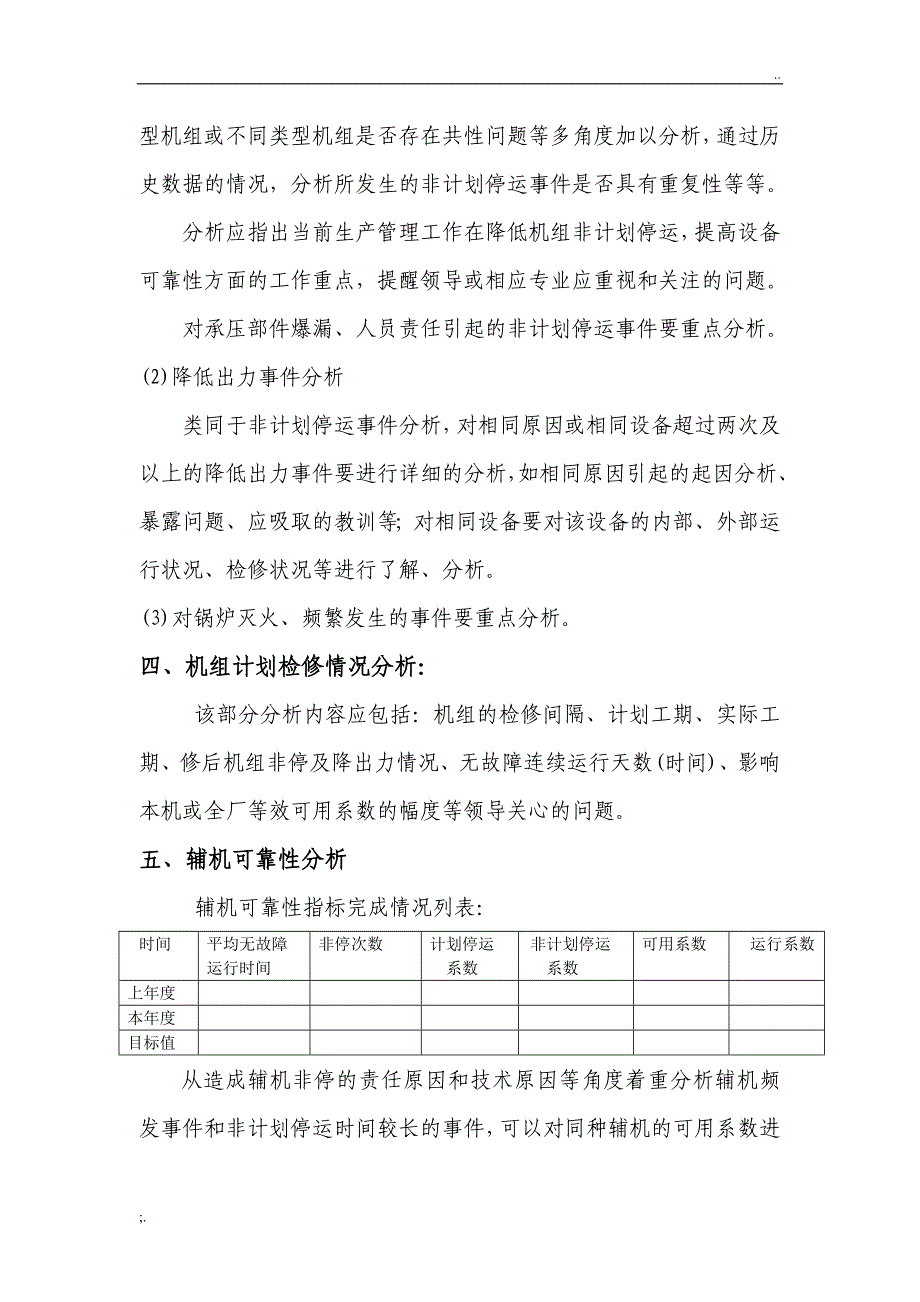 ..
型机组或不同类型机组是否存在共性问题等多角度加以分析，通过历
史数据的情况，分析所发生的非计划停运事件是否具有重复性等等。
分析应指出当前生产管理工作在降低机组非计划停运，提高设备
可靠性方面的工作重点，提醒领导或相应专业应重视和关注的问题。
对承压部件爆漏、人员责任引起的非计划停运事件要重点分析。
(2)降低出力事件分析
类同于非计划停运事件分析，对相同原因或相同设备超过两次及
以上的降低出力事件要进行详细的分析，如相同原因引起的起因分析、
暴露问题、应吸取的教训等；对相同设备要对该设备的内部、外部运
行状况、检修状况等进行了解、分析。
(3)对锅炉灭火、频繁发生的事件要重点分析。
四、机组计划检修情况分析：
该部分分析内容应包括：机组的检修间隔、计划工期、实际工
期、修后机组非停及降出力情况、无故障连续运行天数(时间)、影响
本机或全厂等效可用系数的幅度等领导关心的问题。
五、辅机可靠性分析
辅机可靠性指标完成情况列表：
时间 平均无故障 非停次数 计划停运 非计划停运 可用系数 运行系数
运行时间 系数 系数
上年度
本年度
目标值
从造成辅机非停的责任原因和技术原因等角度着重分析辅机频
发事件和非计划停运时间较长的事件，可以对同种辅机的可用系数进
;.